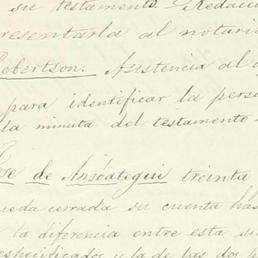 su testamento. Redacci
resentarla al notari
Robertson. Asistencia al o
para identificar la pers
la minuta del testamento
se de Ansoategui treinta
ueda cerrada su cuenta hás
la diferencia entre esta su
especificados y la de las dos p